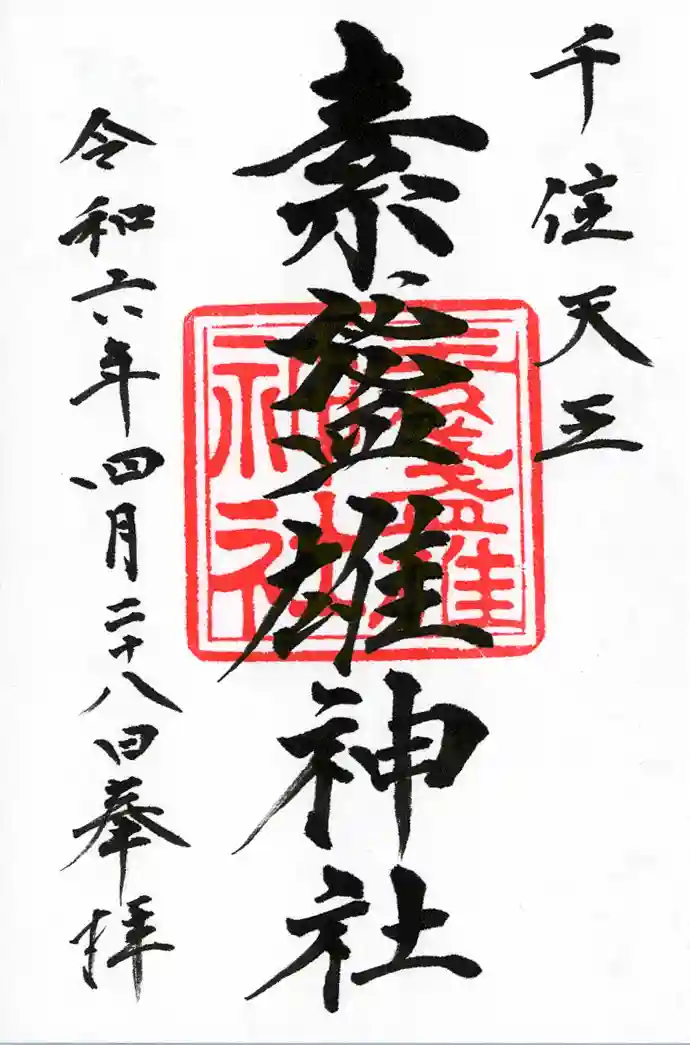 千住天王
素盞雄神社
素盞雄
神社
令和六年四月二十八日奉拝